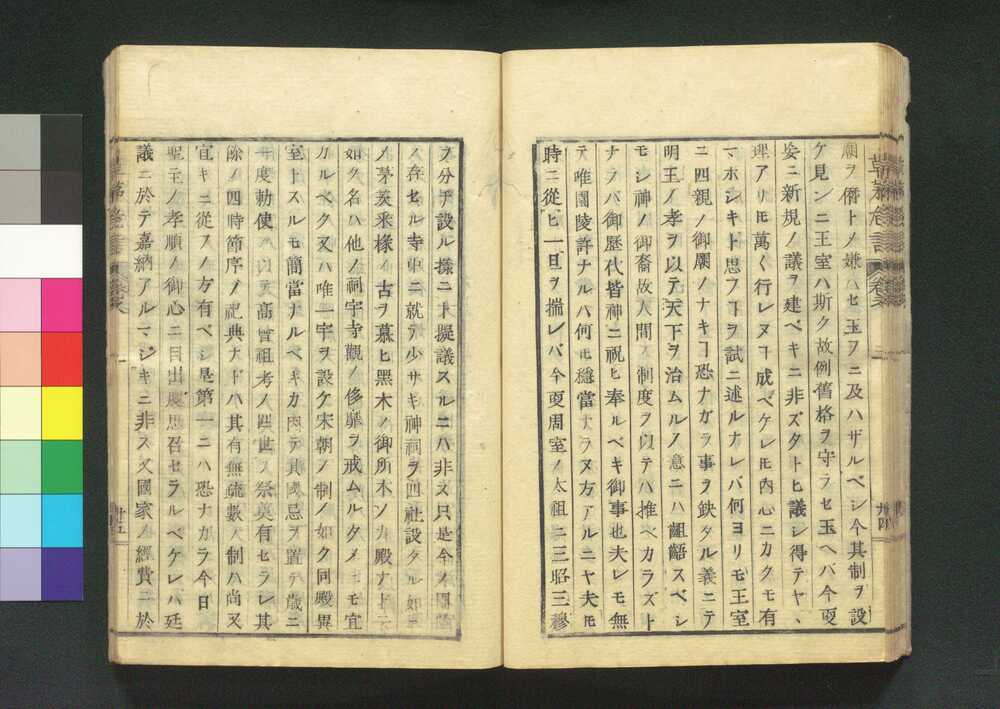 廟ヲ僭トノ嫌ハセ玉フニ及ハザルベシ今其制ヲ設
ケ見ンニ王室ハ斯ク故例舊格ヲ守ラセ玉ヘバ今更
妄ニ新規ノ議ヲ建ベキニ非ズタトヒ議シ得テヤヽ
理アリトモ萬々行レヌヿ成ベケレトモ内心ニカクモ有
マホシキト思フヿヲ試ニ述ルナレバ何ヨリモ王室
ニ四親ノ御廟ノナキヿ恐ナガラ事ヲ缺タル義ニテ
明王ノ孝ヲ以テ天下ヲ治ムルノ意ニハ齟齬スベシ
モシ神ノ御裔故人間ノ制度ヲ以テハ推ベカラズト
ナラバ御歴代皆神ニ祝ヒ奉ルベキ御事也夫レモ無
テ唯園陵許ナルハ何トモ穩當ナラヌ方アルニヤ夫トモ
時ニ從ヒ一旦ヲ揣レバ今更周室ノ太祖ニ三昭三穆
卅四
ヲ分チ設ル樣ニト擬議スルニハ非ズ只是今ノ
ノ存セル寺中ニ就テ少サキ神祠ヲ四社設タル如ニ
ノ茅茨釆椽ノ古ヲ慕ヒ黒木ノ御所木ノ丸殿ナト云
如ク名ハ他ノ祠宇寺觀ノ侈靡ヲ戒ムルタメニモ宜
カルベク又ハ唯一宇ヲ設ケ宋朝ノ制ノ如ク同殿異
室トスルモ簡當ナルベキカ内テ其國忌ヲ置テ歳ニ
一度勅使ヲ以テ高曾祖考ノ四世ヲ祭奠有セラレ其
餘ノ四時節序ノ祀典ナトハ其有無疏數ノ制ハ尚又
宜キニ從フノ方有ベシ是第一ニハ恐ナガラ今日
聖主ノ孝順ノ御心ニ目出度思召セラルベケレハ廷
議ニ於テ嘉納アルマジキニ非ス又國家ノ經費ニ於
廿五